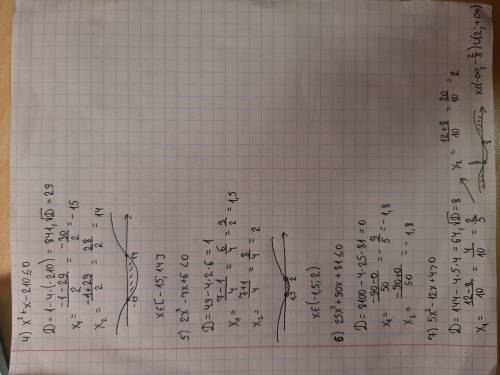 4) x²+x-210≤0
D=1-4·(-210)=841, √D=29
x₁= (-1-29)/2 = -30/2 = -15
x₂= (-1+29)/2 = 28/2 = 14
-15 14
x∈[-15; 14]
5) 2x²-7x+6≤0
D=49-4·2·6=1
x₁= (7-1)/4 = 6/4 = 3/2 = 1,5
x₂= (7+1)/4 = 8/4 = 2
1,5 2
x∈(-1,5; 2)
6) 25x²+90x+81≤0
D=8100-4·25·81=0
x₁= (-90-0)/50 = -9/5 = -1,8
x₂= (-90+0)/50 = -1,8
7) 5x²-12x+4>0
D=144-4·5·4=64, √D=8
x₁= (12-8)/10 = 4/10 = 2/5
x₂= (12+8)/10 = 20/10 = 2